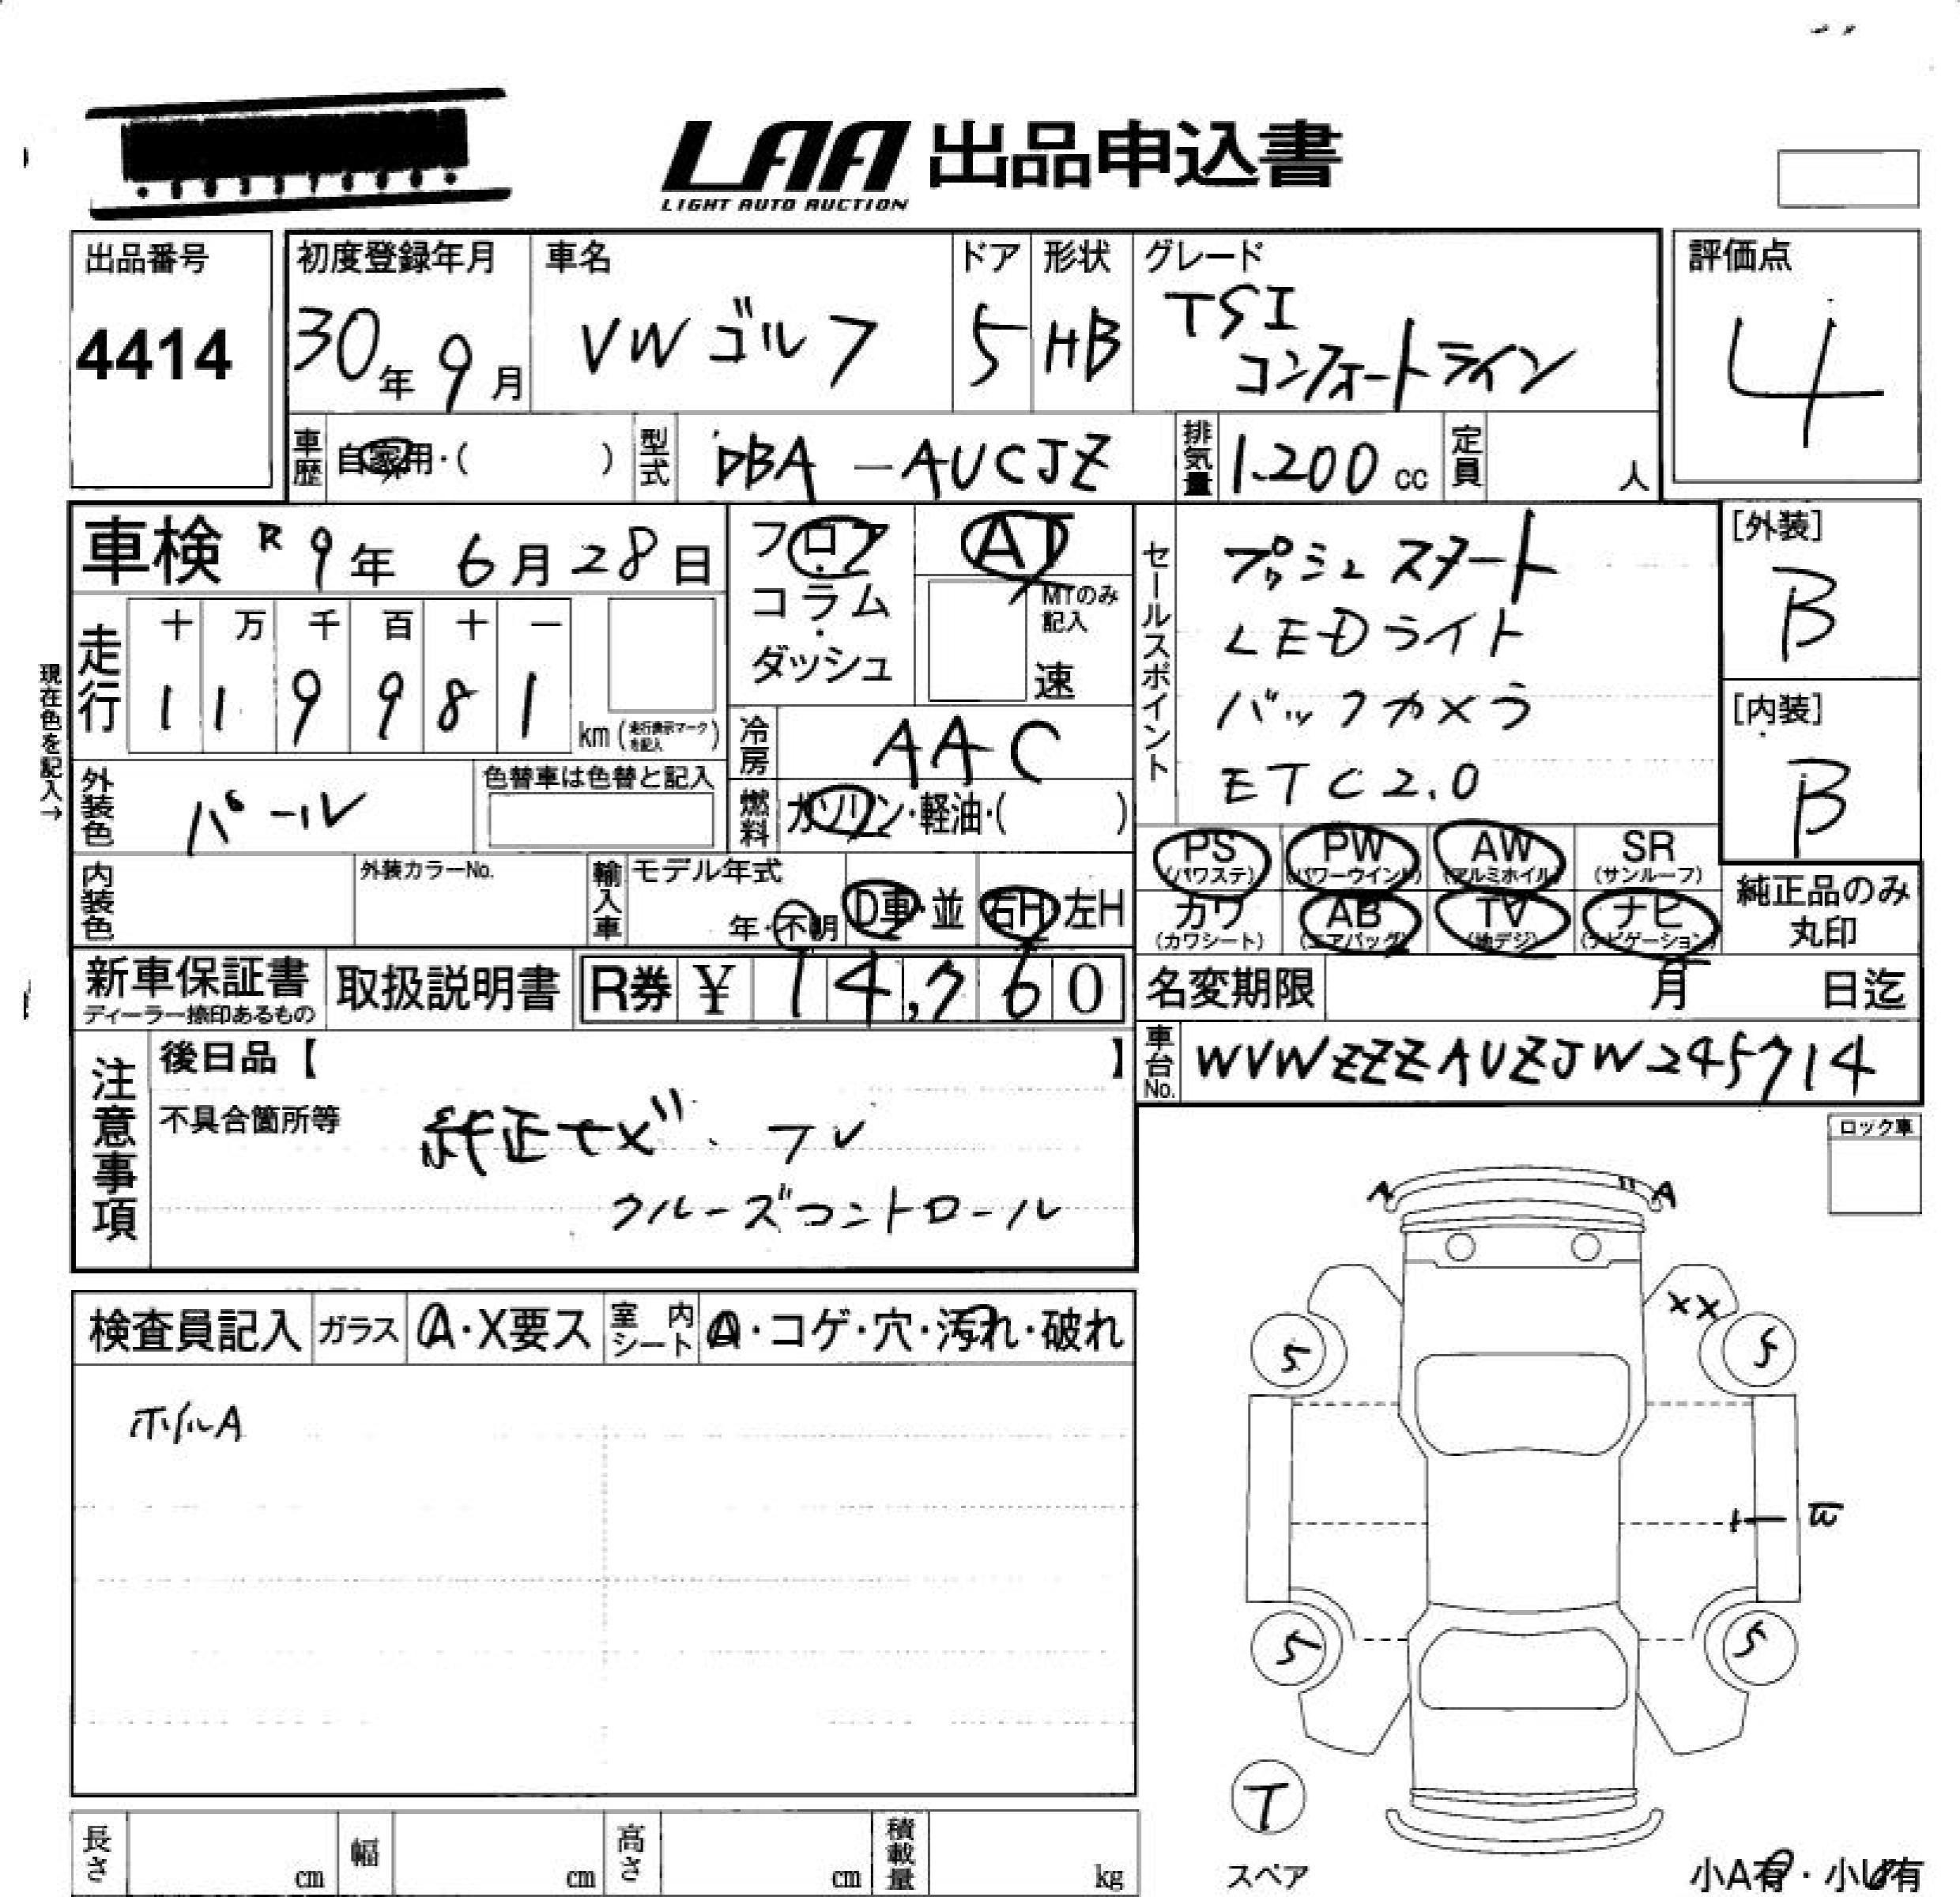 LAA 出品申込書
LIGHT AUTO AUCTION
出品番号
4414
初度登録年月
30年 9月
車名
VW ゴルフ
ドア
5
形状
HB
グレード
TSI
コンフォートライン
評価点
4
車歴 自家用・( )
型式 DBA-AUCJZ
排気量 1.200 cc
定員 人
車検 R9年 6月28日
フロア・コラム・ダッシュ
AT
MTのみ記入
速
走行
十 万 千 百 十 一
1 1 9 9 8 1
km(走行表示マークを記入)
現在色を記入→
冷房 AAC
燃料 ガソリン・軽油・( )
外装色 パール
色替車は色替と記入
内装色
外装カラーNo.
輸入車 モデル年式
年・不明
D車・並
右H・左H
セールスポイント
プッシュスタート
LEDライト
バックカメラ
ETC2.0
[外装]
B
[内装]
B
PS
(パワステ)
PW
(パワーウインド)
AW
(アルミホイル)
SR
(サンルーフ)
カワ
(カワシート)
AB
(エアバッグ)
TV
(地デジ)
ナビ
(ナビゲーション)
純正品のみ
丸印
新車保証書
ディーラー捺印あるもの
取扱説明書
R券 ¥ 14,760
名変期限 月 日迄
車台No. WVWZZZAUZJW245714
注意事項
後日品【 】
不具合箇所等
純正ナビ、TV
クルーズコントロール
ロック車
検査員記入
ガラス
A・X要ス
室内シート
A・コゲ・穴・汚れ・破れ
ホイルA
A
A
XX
5
5
5
5
T
スペア
長さ cm
幅 cm
高さ cm
積載量 kg
小A有・小U有